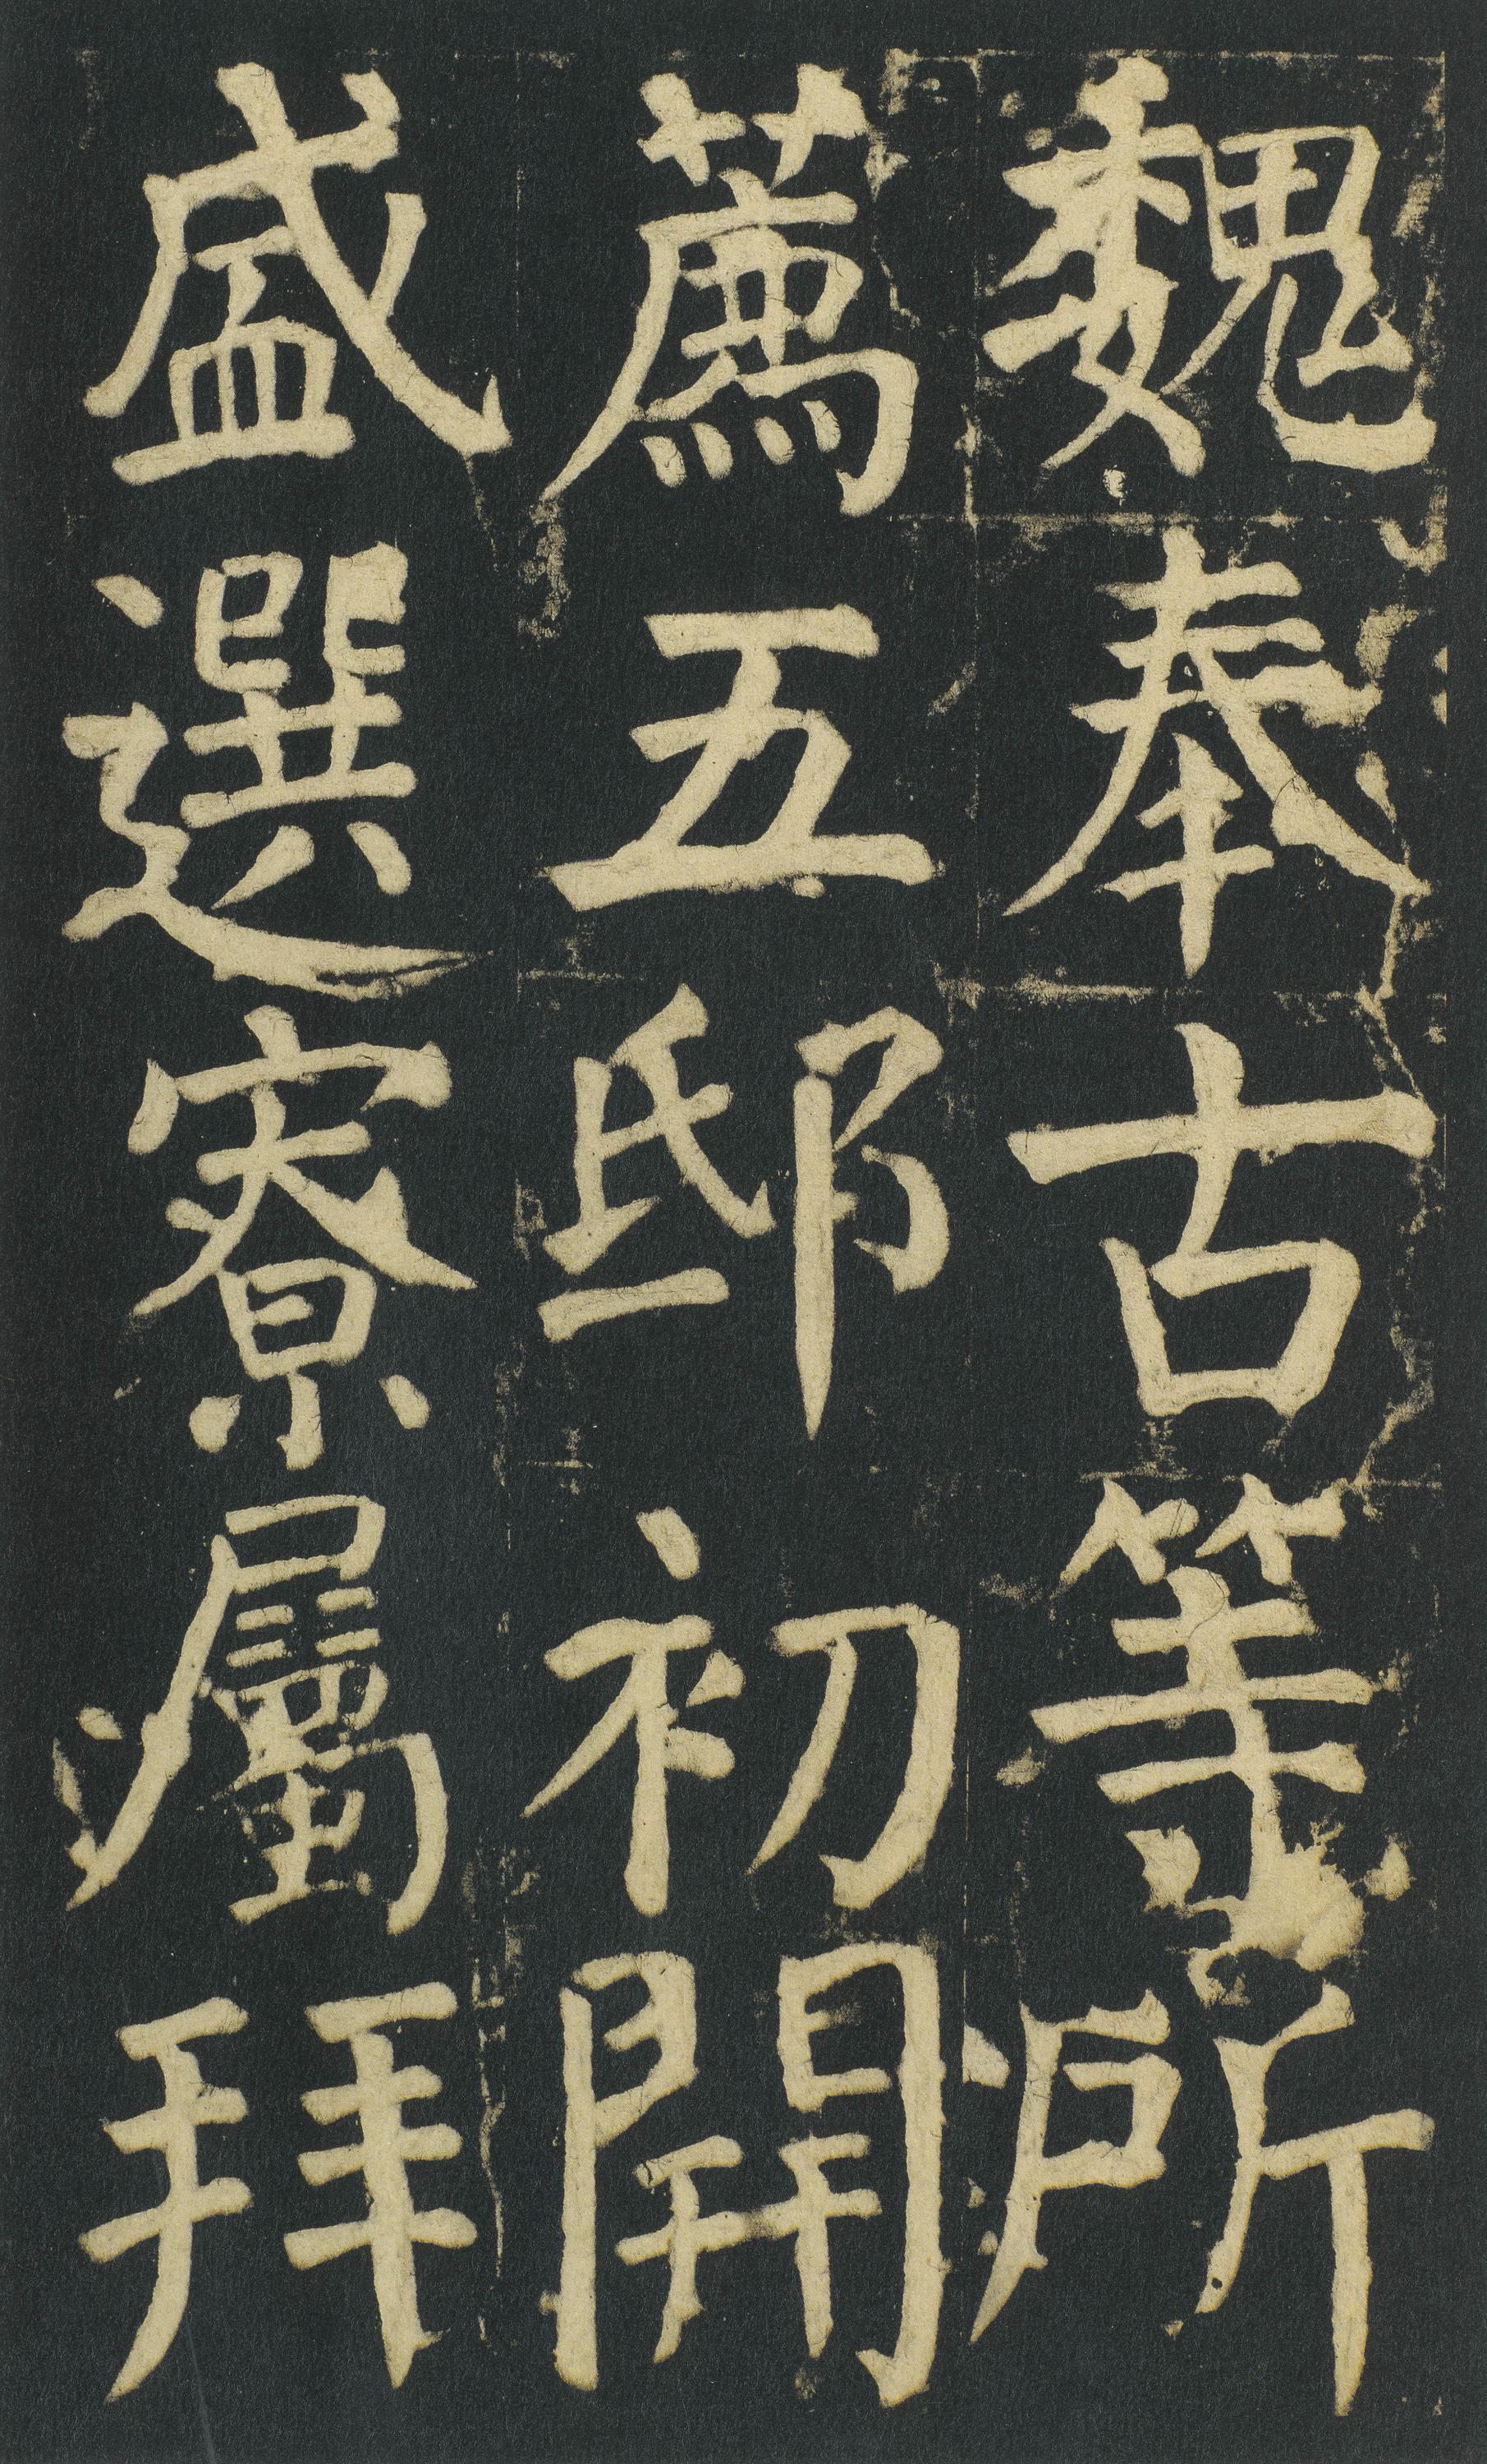 魏奉古等所
薦五邸初開
盛選寮屬拜